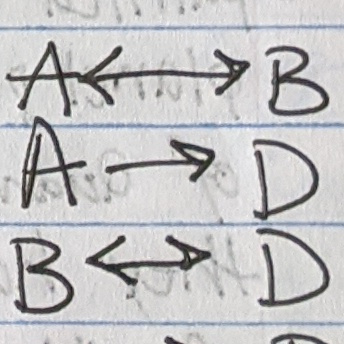 A ↔ B
A → D
B ↔ D